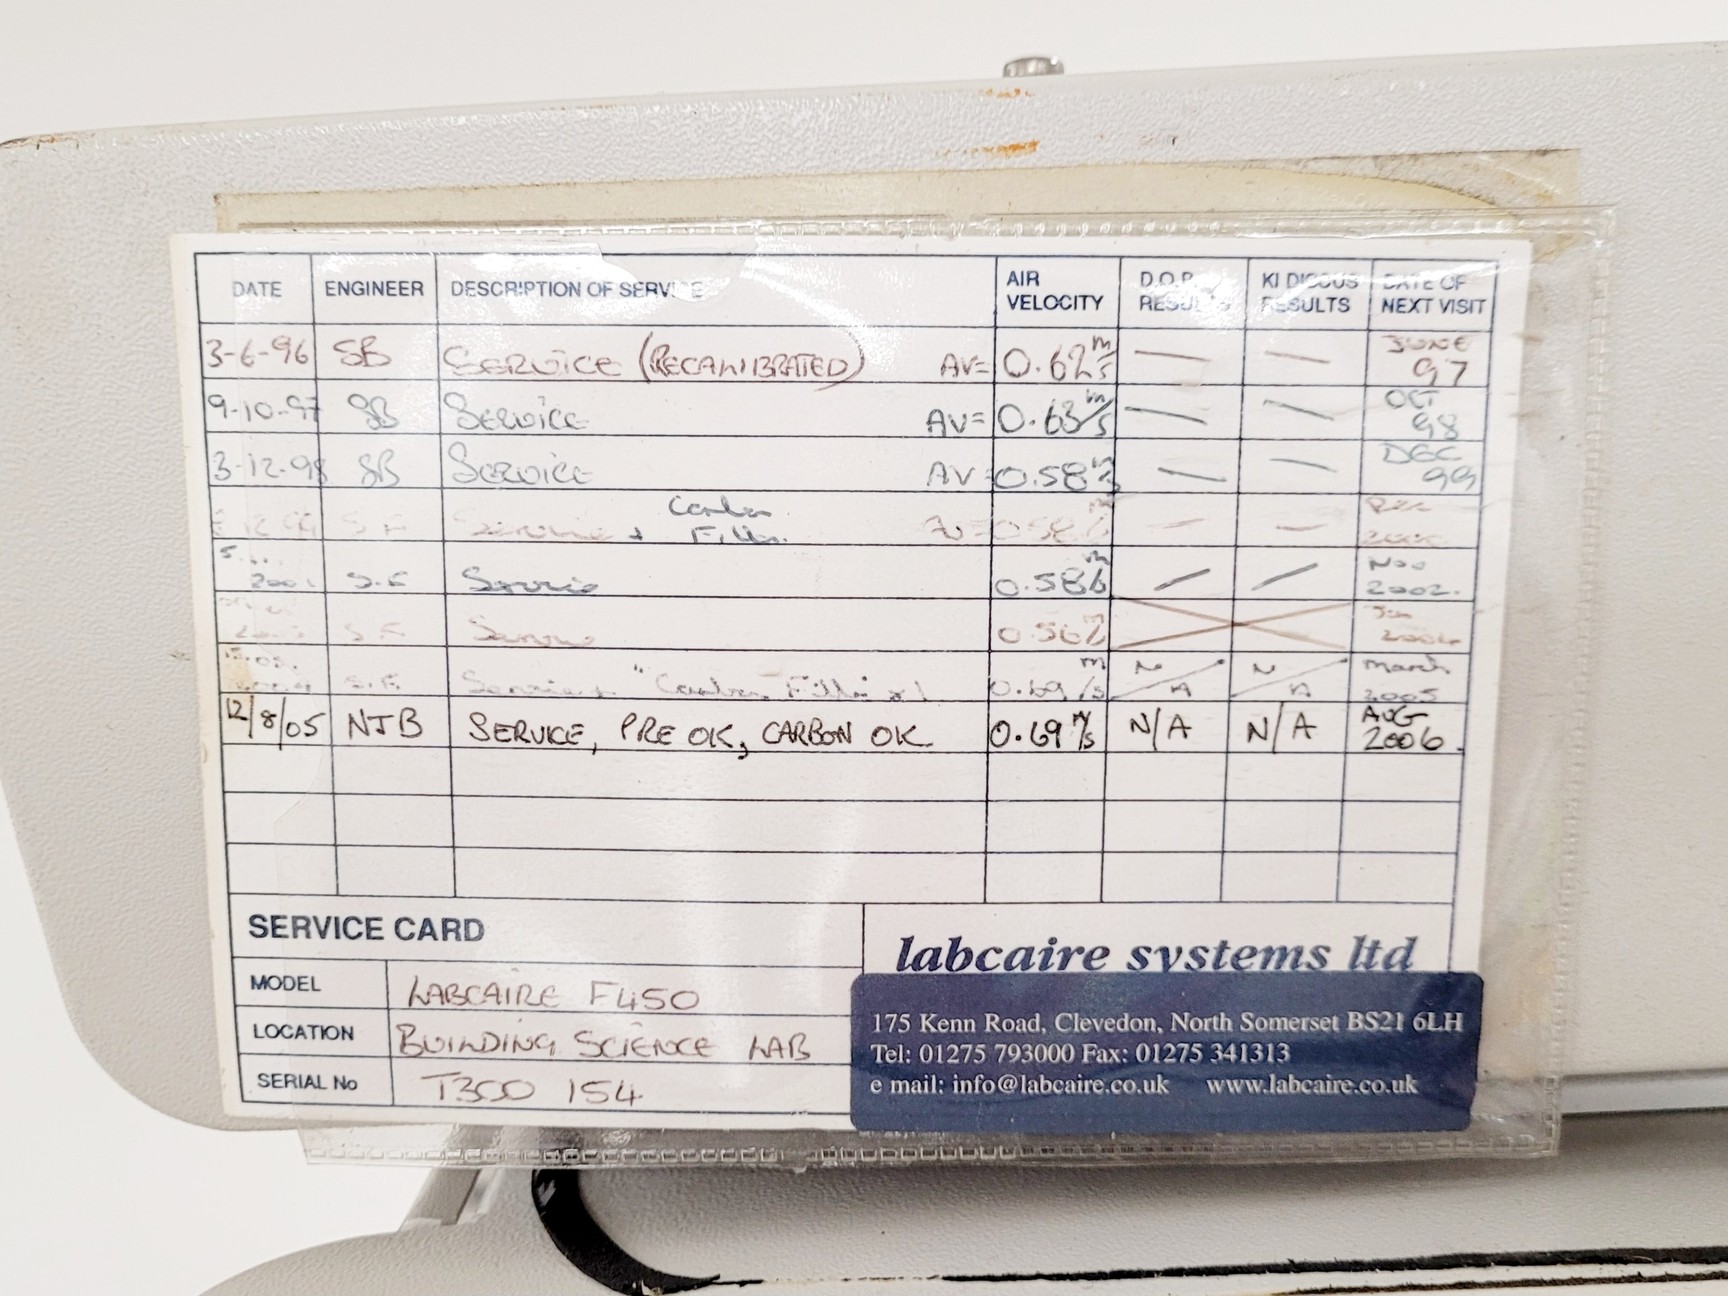 DATE ENGINEER DESCRIPTION OF SERVICE AIR VELOCITY D.O.P. RESULTS KI DISCUS RESULTS DATE OF NEXT VISIT
3-6-96 SB SERVICE (RECALIBRATED) AV= 0.62 m/s — — JUNE 97
9-10-97 SB SERVICE AV= 0.63 m/s — — OCT 98
3-12-98 SB SERVICE AV= 0.58 m/s — — DEC 99
12 99 S.F Service + Carbon Filter. AV=0.58 m/s — — Dec
2001 S.F Service 0.58 m/s / / Nov 2002.
S.F Service 0.56 m/s Jan
S.F Service + "Carbon Filter x1 0.69 m/s N/A N/A March 2005
12/8/05 NJB SERVICE, PRE OK, CARBON OK 0.69 m/s N/A N/A AUG 2006.
SERVICE CARD
MODEL LABCAIRE F450
LOCATION BUILDING SCIENCE LAB
SERIAL No T300 154
labcaire systems ltd
175 Kenn Road, Clevedon, North Somerset BS21 6LH
Tel: 01275 793000 Fax: 01275 341313
e mail: info@labcaire.co.uk www.labcaire.co.uk